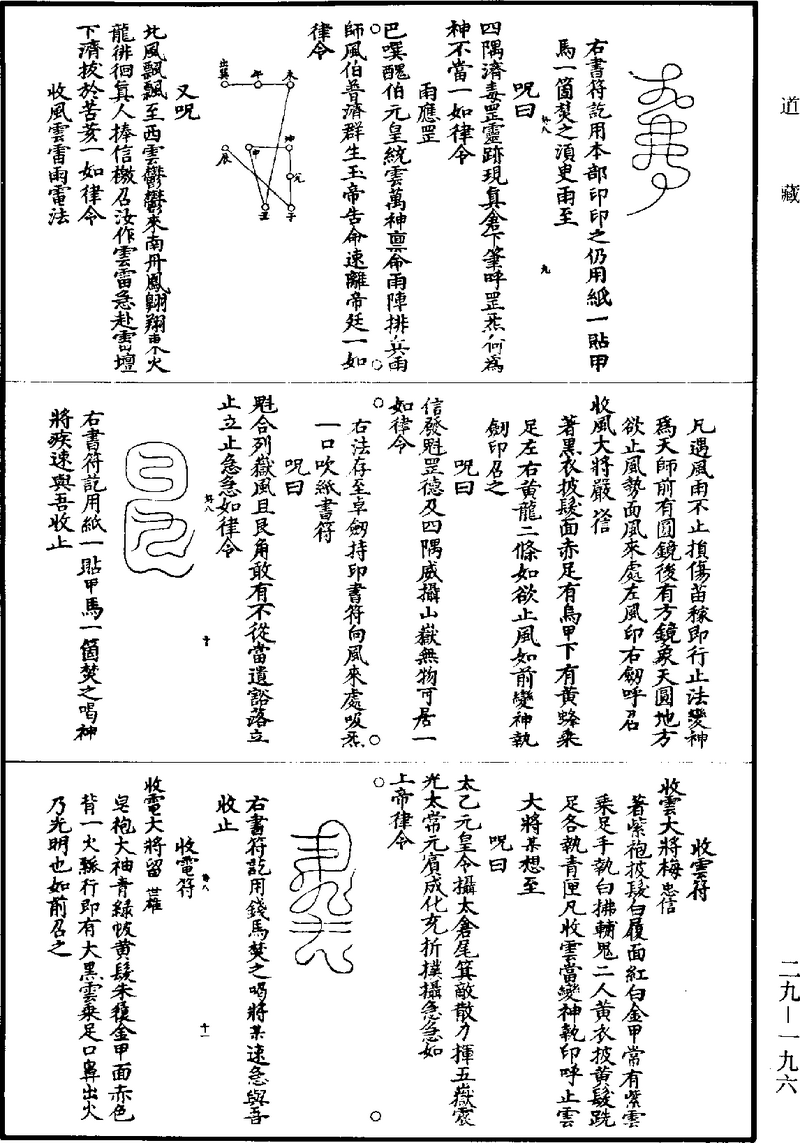 道藏
右書符訖用本部印印之仍用紙一貼甲
馬一箇焚之須臾雨至
咒曰
四隅濟毒罡靈跡現真倉下筆呼罡炁何為
神不當一如律令
雨應罡
巴噀醜伯元皇統雲萬神稟命雨陣排兵雨
師風伯普濟群生玉帝告命速離帝廷一如
律令
未
午
出巽
坤
申
辰
亢
丑
子
又咒
北風飄飄至西雲鬱鬱來南丹鳳翺翔東火
龍徘徊真人捧信檄召汝作雲雷急赴雷壇
下濟拔於苦荄一如律令
收風雲雷雨電法
九
凡遇風雨不止損傷苗稼即行止法變神
為天師前有圓鏡後有方鏡象天圓地方
欲止風勢面風來處左風印右劒呼召
收風大將嚴 信
著黑衣披髮面赤足有鳥甲下有黃蜂乘
足左右黃龍二條如欲止風如前變神執
劒印召之
咒曰
信發魁罡德及四隅威攝山嶽無物可居一
如律令
右法存至卓劒持印書符向風來處吸炁
一口吹紙書符
咒曰
魁合列嶽風且艮角敢有不從當遣谿落立
止立止急急如律令
十
右書符訖用紙一貼甲馬一箇焚之喝神
將疾速與吾收止
收雲符
收雲大將梅忠信
著紫袍披髮白履面紅白金甲常有紫雲
乘足手執白拂輔鬼二人黃衣披黃髮跣
足各執青匣凡收雲當變神執印呼止雲
大將某想至
咒曰
太乙元皇令攝太倉尾箕敵散力揮五嶽震
光太常元賓成化充折撲攝急急如
上帝律令
右書符訖用錢馬焚之喝將某速急與吾
收止
收電符
十一
收電大將留
皂袍大袖青綠帔黃髮朱履金甲面赤色
背一火瓢行即有大黑雲乘足口鼻出火
乃光明也如前召之
二九－一九六